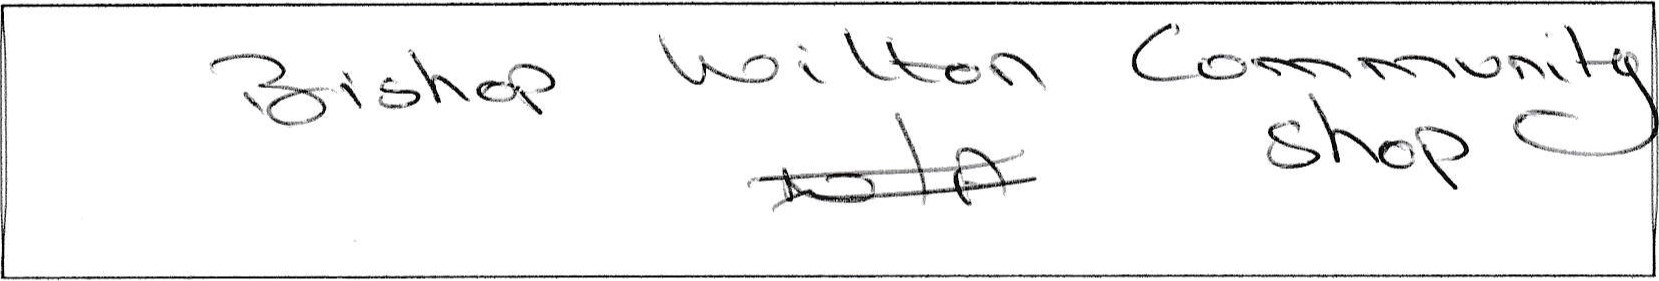 Bishop Wilton Community
shop